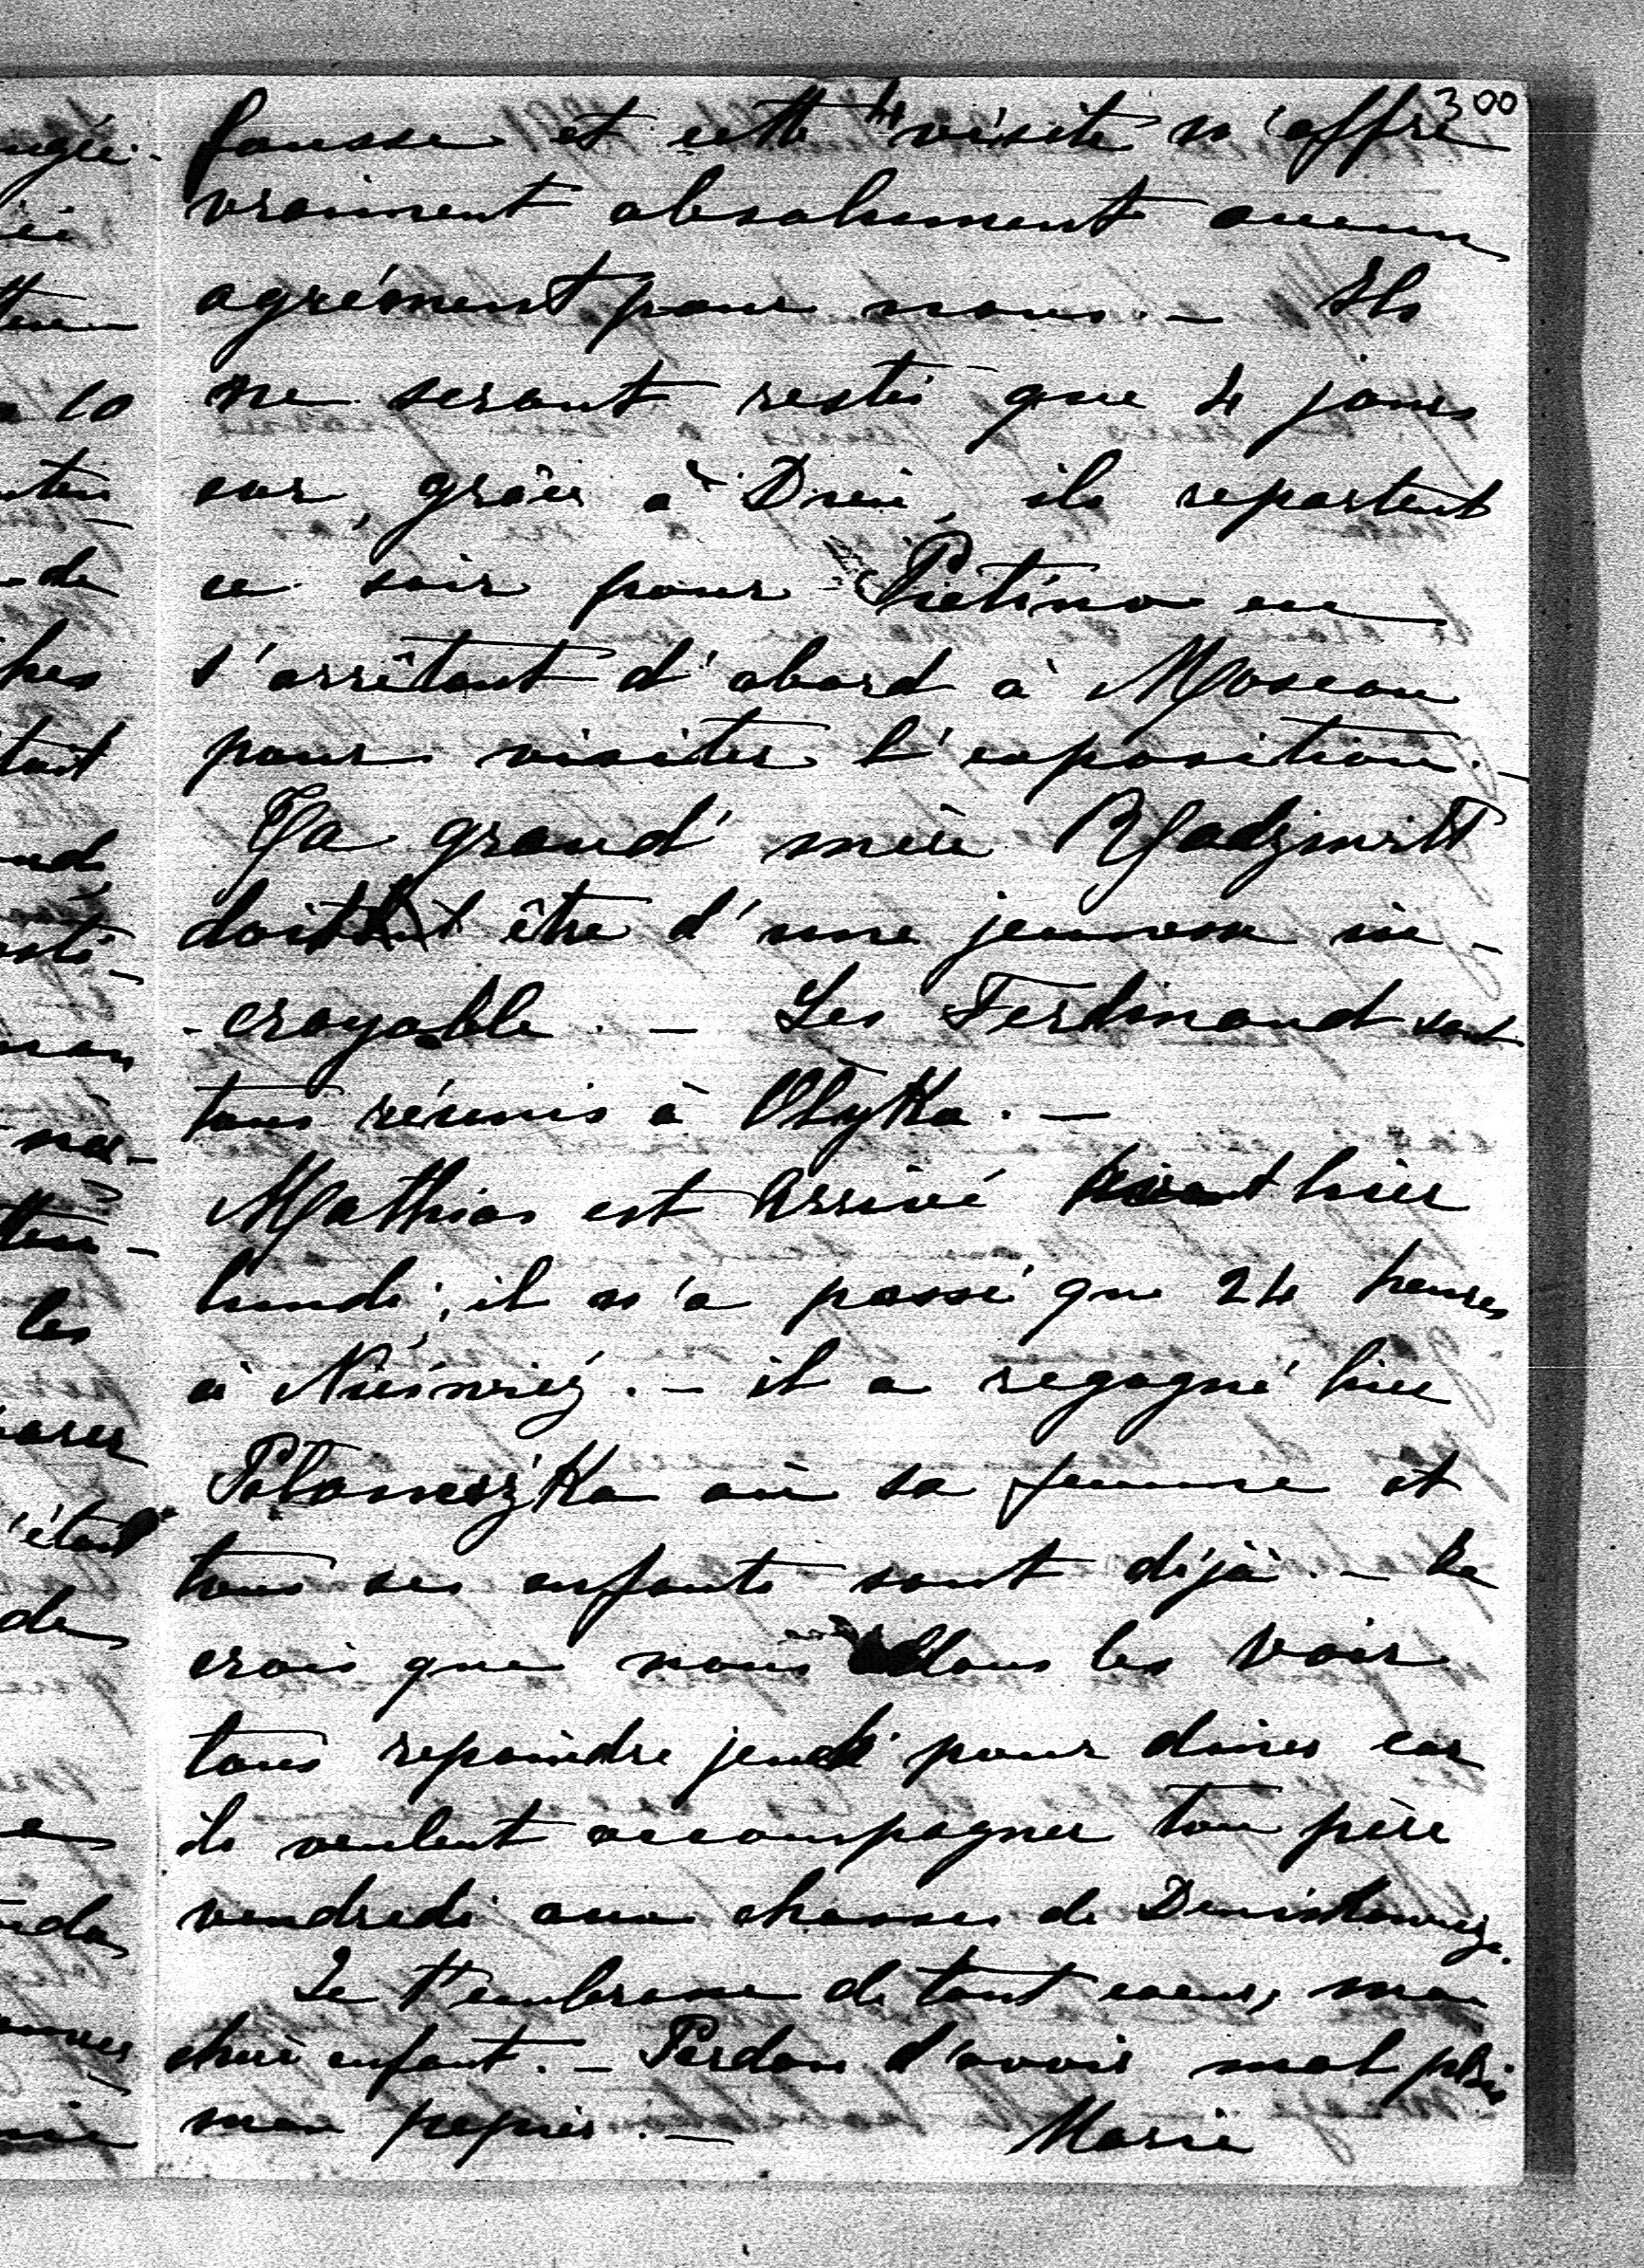 300
fausse et cette visite n'offre
vraiment absolument aucun
agrément pour nous. — Ils
ne seront restés que 4 jours
car, grâce à Dieu, ils repartent
ce soir pour en
s'arrêtant d'abord à Moscou
pour visiter l'exposition. —
Ta grand'mère
doit être d'une jeunesse in-
-croyable. — Les Ferdinand sont
tous réunis à Olyka. —
Mathias est arrivé avant hier
lundi; il n'a passé que 24 heures
à Nieśwież. — il a regagné hier
où sa femme et
tous ses enfants sont déjà. — Je
crois que nous allons les voir
tous jeudi pour diner car
ils veulent accompagner ton père
vendredi aux chasses de
Je t'embrasse de tout coeur, mon
cher enfant. — Pardon d'avoir mal plié
mon papier. — Marie